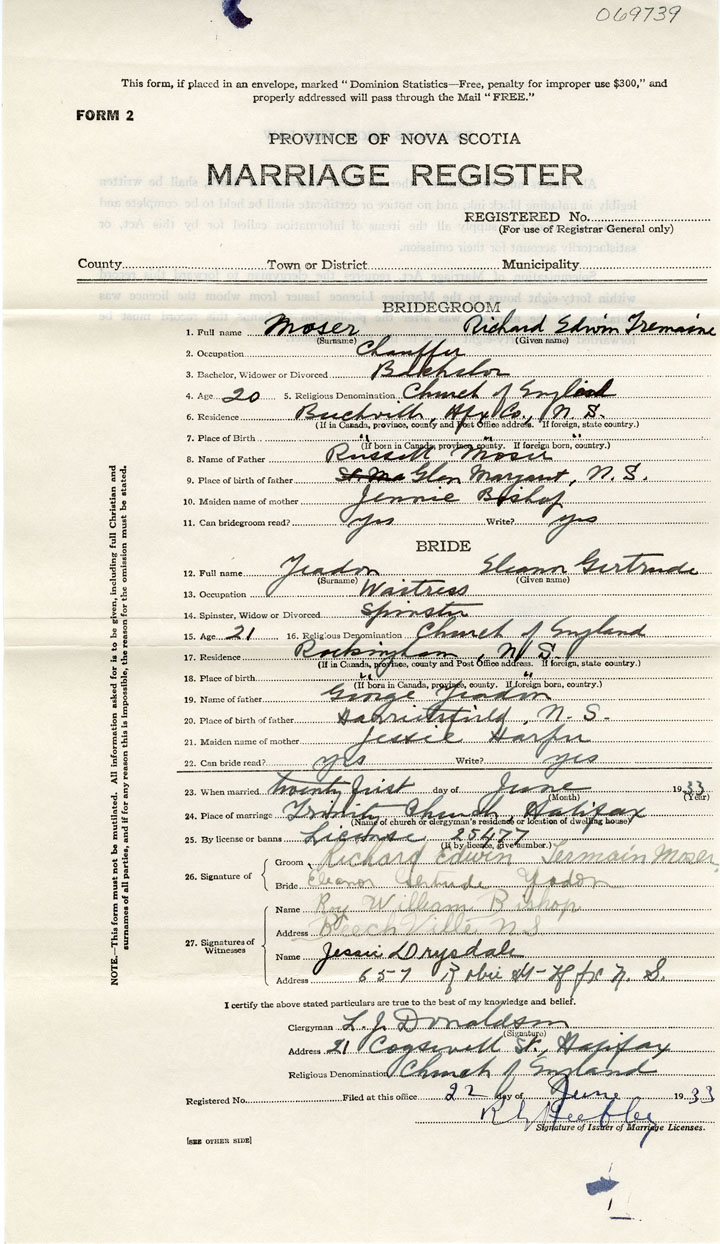 069739
This form, if placed in an envelope, marked "Dominion Statistics—Free, penalty for improper use $300," and
properly addressed will pass through the Mail "FREE."
FORM 2
PROVINCE OF NOVA SCOTIA
MARRIAGE REGISTER
REGISTERED No.
(For use of Registrar General only)
County Town or District Municipality
BRIDEGROOM
1. Full name Moser Richard Edwin Tremaine
(Surname) (Given name)
2. Occupation Chauffer
3. Bachelor, Widower or Divorced Bachelor
4. Age 20 5. Religious Denomination Church of England
6. Residence Beechville, Hfx Co., N. S.
(If in Canada, province, county and Post Office address. If foreign, state country.)
7. Place of Birth " "
(If born in Canada, province, county. If foreign born, country.)
8. Name of Father Russell Moser
9. Place of birth of father Glen Margaret, N. S.
10. Maiden name of mother Jennie Bishop
11. Can bridegroom read? yes Write? yes
BRIDE
12. Full name Yeadon Eleanor Gertrude
(Surname) (Given name)
13. Occupation Waitress
14. Spinster, Widow or Divorced Spinster
15. Age 21 16. Religious Denomination Church of England
17. Residence Rockingham, N. S.
(If in Canada, province, county and Post Office address. If foreign, state country.)
18. Place of birth " "
(If born in Canada, province, county. If foreign born, country.)
19. Name of father George Yeadon
20. Place of birth of father Harrietfield, N. S.
21. Maiden name of mother Jessie
22. Can bride read? yes Write? yes
23. When married twenty first day of June 1933
(Month) (Year)
24. Place of marriage Trinity Church, Halifax
(Name of church or clergyman's residence or location of dwelling house)
25. By license or banns License 25477
(If by license, give number.)
26. Signature of
Groom Richard Edwin Termain Moser.
Bride Eleanor Gertrude Yadon
27. Signatures of Witnesses
Name Roy William Bishop
Address Beech Ville N S
Name Jessie Drysdale
Address 657 Robie St - Hfx N. S.
I certify the above stated particulars are true to the best of my knowledge and belief.
Clergyman L. J. Donaldson
(Signature)
Address 21 Cogswell St., Halifax
Religious Denomination Church of England
Registered No. Filed at this office 22 day of June 1933
Signature of Issuer of Marriage Licenses.
[SEE OTHER SIDE]
NOTE.—This form must not be mutilated. All information asked for is to be given, including full Christian and
surnames of all parties, and if for any reason this is impossible, the reason for the omission must be stated.